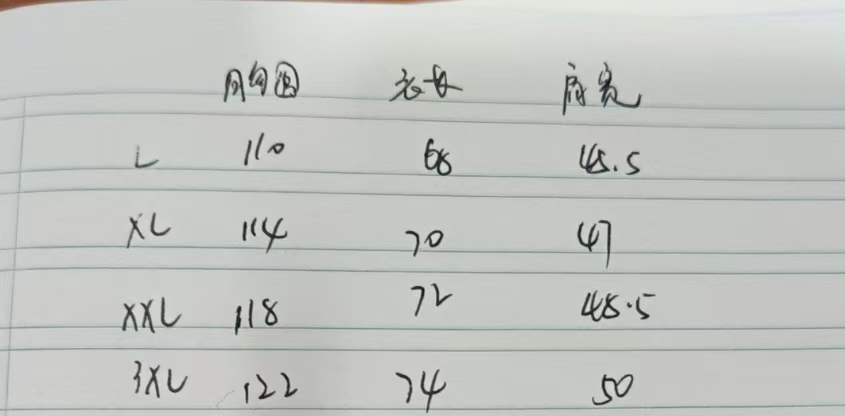 胸围 衣长 肩宽
L 110 68 45.5
XL 114 70 47
XXL 118 72 48.5
3XL 122 74 50